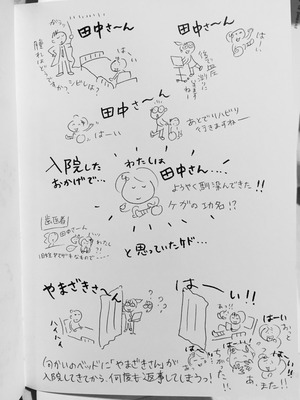 田中さ〜ん
ガラッ
腫れはどうですか？シビレは？
はい、
田中さ〜ん
はーい
田中さ〜ん
はーい
あとでリハビリ
行きますねー
入院した
おかげで…
わたしは
田中さん…
ようやく馴染んできた!!
ケガの功名!?
と思っていたケド…
田中さーん
やまざきさ〜ん
ハイハイ
はーい!!
はーい
あっ
ちがった!!
はーい
あ、また!!
向かいのベッドに「やまざきさん」が
入院してきてから、何度も返事してしまうっ！